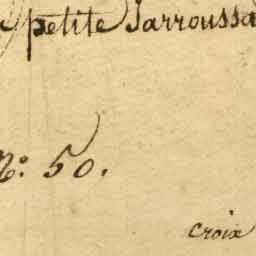 petite Jarroussa
N.º 50.
croix